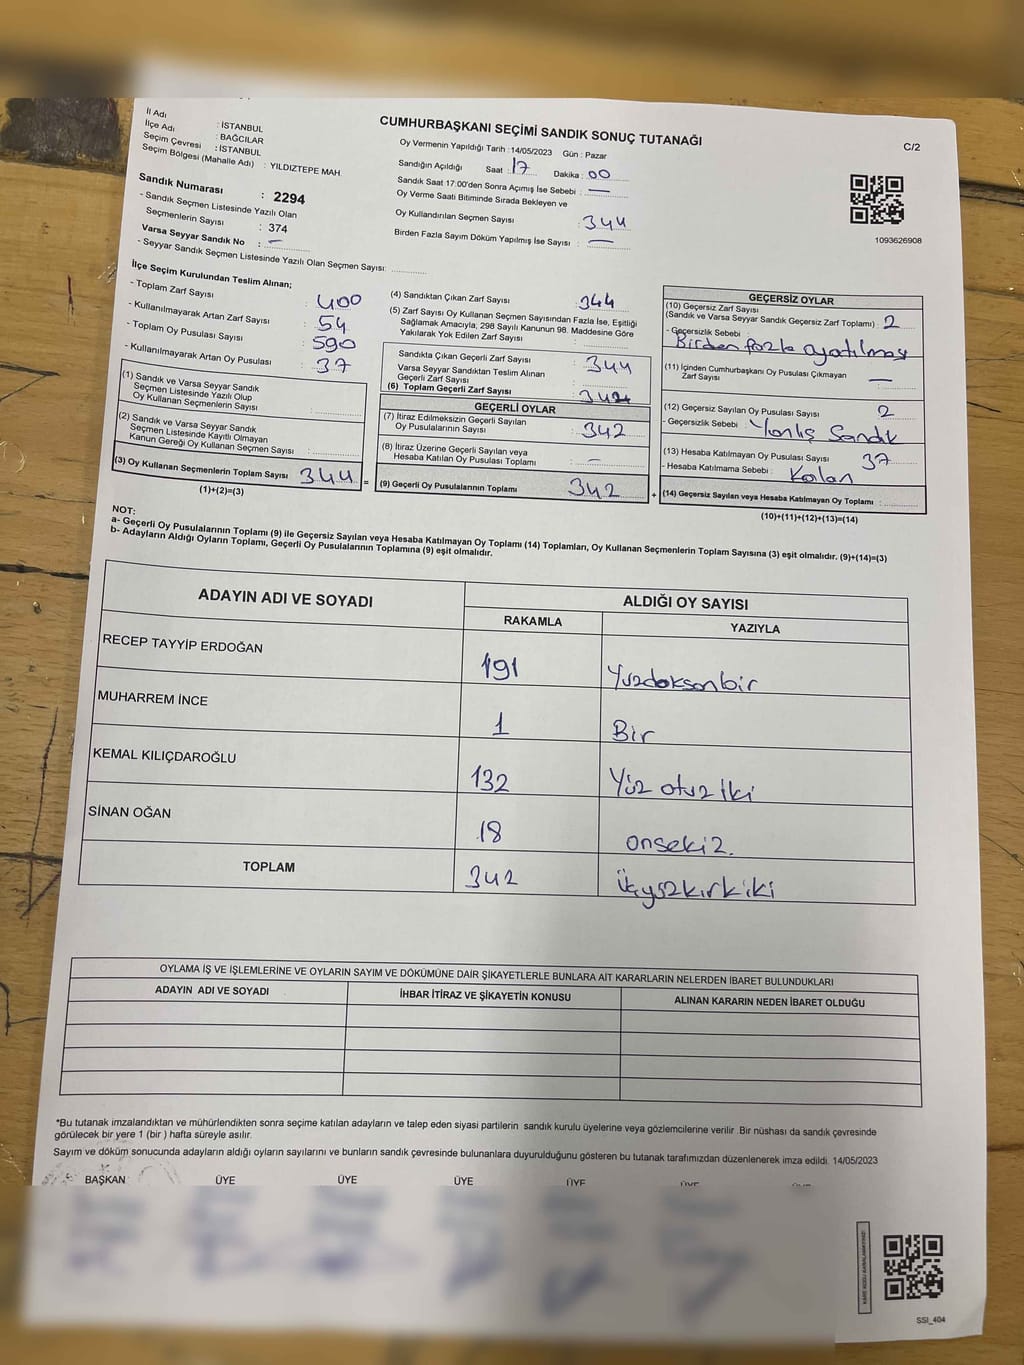 İl Adı : İSTANBUL
İlçe Adı : BAĞCILAR
Seçim Çevresi : İSTANBUL
Seçim Bölgesi (Mahalle Adı) : YILDIZTEPE MAH
Sandık Numarası : 2294
- Sandık Seçmen Listesinde Yazılı Olan
Seçmenlerin Sayısı : 374
Varsa Seyyar Sandık No : —
- Seyyar Sandık Seçmen Listesinde Yazılı Olan Seçmen Sayısı:
CUMHURBAŞKANI SEÇİMİ SANDIK SONUÇ TUTANAĞI
Oy Vermenin Yapıldığı Tarih : 14/05/2023 Gün : Pazar
Sandığın Açıldığı Saat : 17 Dakika : 00
Sandık Saat 17:00'den Sonra Açımış İse Sebebi : —
Oy Verme Saati Bitiminde Sırada Bekleyen ve
Oy Kullandırılan Seçmen Sayısı : 344
Birden Fazla Sayım Döküm Yapılmış İse Sayısı : —
C/2
1093626908
İlçe Seçim Kurulundan Teslim Alınan;
- Toplam Zarf Sayısı : 400
- Kullanılmayarak Artan Zarf Sayısı : 54
- Toplam Oy Pusulası Sayısı : 590
- Kullanılmayarak Artan Oy Pusulası : 37
(1) Sandık ve Varsa Seyyar Sandık
Seçmen Listesinde Yazılı Olup
Oy Kullanan Seçmenlerin Sayısı :
(2) Sandık ve Varsa Seyyar Sandık
Seçmen Listesinde Kayıtlı Olmayan
Kanun Gereği Oy Kullanan Seçmen Sayısı :
(3) Oy Kullanan Seçmenlerin Toplam Sayısı : 344 =
(1)+(2)=(3)
(4) Sandıktan Çıkan Zarf Sayısı : 344
(5) Zarf Sayısı Oy Kullanan Seçmen Sayısından Fazla İse, Eşitliği
Sağlamak Amacıyla; 298 Sayılı Kanunun 98. Maddesine Göre
Yakılarak Yok Edilen Zarf Sayısı :
Sandıkta Çıkan Geçerli Zarf Sayısı : 344
Varsa Seyyar Sandıktan Teslim Alınan
Geçerli Zarf Sayısı :
(6) Toplam Geçerli Zarf Sayısı :
GEÇERLİ OYLAR
(7) İtiraz Edilmeksizin Geçerli Sayılan
Oy Pusulalarının Sayısı : 342
(8) İtiraz Üzerine Geçerli Sayılan veya
Hesaba Katılan Oy Pusulası Toplamı : —
(9) Geçerli Oy Pusulalarının Toplamı : 342 +
GEÇERSİZ OYLAR
(10) Geçersiz Zarf Sayısı
(Sandık ve Varsa Seyyar Sandık Geçersiz Zarf Toplamı) : 2
- Geçersizlik Sebebi :
Birden fazla
(11) İçinden Cumhurbaşkanı Oy Pusulası Çıkmayan
Zarf Sayısı : —
(12) Geçersiz Sayılan Oy Pusulası Sayısı : 2
- Geçersizlik Sebebi : Yanlış Sandık
(13) Hesaba Katılmayan Oy Pusulası Sayısı : 37
- Hesaba Katılmama Sebebi : Kalan
(14) Geçersiz Sayılan veya Hesaba Katılmayan Oy Toplamı :
(10)+(11)+(12)+(13)=(14)
NOT:
a- Geçerli Oy Pusulalarının Toplamı (9) ile Geçersiz Sayılan veya Hesaba Katılmayan Oy Toplamı (14) Toplamları, Oy Kullanan Seçmenlerin Toplam Sayısına (3) eşit olmalıdır. (9)+(14)=(3)
b- Adayların Aldığı Oyların Toplamı, Geçerli Oy Pusulalarının Toplamına (9) eşit olmalıdır.
ADAYIN ADI VE SOYADI ALDIĞI OY SAYISI
RAKAMLA YAZIYLA
RECEP TAYYİP ERDOĞAN 191 Yüzdoksanbir
MUHARREM İNCE 1 Bir
KEMAL KILIÇDAROĞLU 132 Yüz otuz iki
SİNAN OĞAN 18 onsekiz.
TOPLAM 342 üçyüzkırkiki
OYLAMA İŞ VE İŞLEMLERİNE VE OYLARIN SAYIM VE DÖKÜMÜNE DAİR ŞİKAYETLERLE BUNLARA AİT KARARLARIN NELERDEN İBARET BULUNDUKLARI
ADAYIN ADI VE SOYADI İHBAR İTİRAZ VE ŞİKAYETİN KONUSU ALINAN KARARIN NEDEN İBARET OLDUĞU
*Bu tutanak imzalandıktan ve mühürlendikten sonra seçime katılan adayların ve talep eden siyasi partilerin sandık kurulu üyelerine veya gözlemcilerine verilir .Bir nüshası da sandık çevresinde
görülecek bir yere 1 (bir ) hafta süreyle asılır.
Sayım ve döküm sonucunda adayların aldığı oyların sayılarını ve bunların sandık çevresinde bulunanlara duyurulduğunu gösteren bu tutanak tarafımızdan düzenlenerek imza edildi. 14/05/2023
BAŞKAN ÜYE ÜYE ÜYE ÜYE ÜYE
KARE KODU KARALAMAYINIZ!
SSI_404